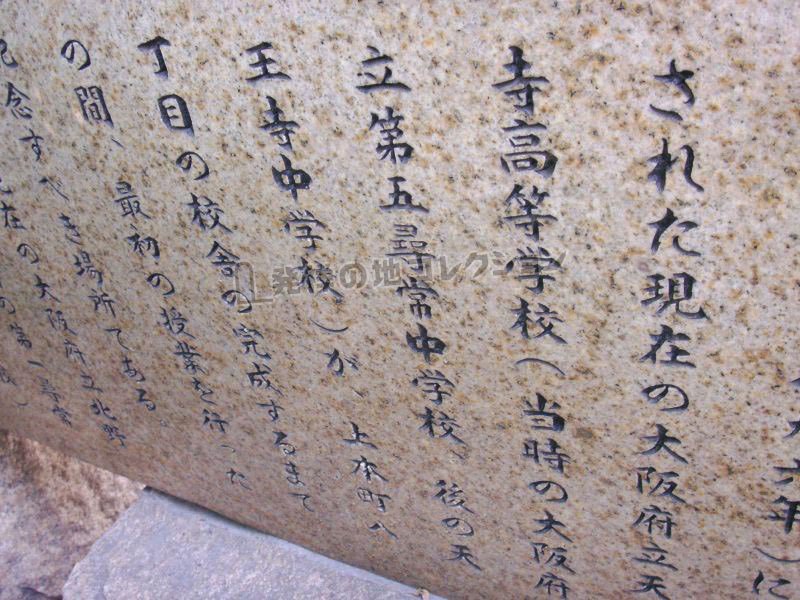 六年）に
された現在の大阪府立天
寺高等学校（当時の大阪府
立第五尋常中学校、後の天
王寺中学校）が、上本町八
丁目の校舎の完成するまで
の間、最初の授業を行った
記念すべき場所である。
現在の大阪府立北野
の第一尋常
発祥の地コレクション